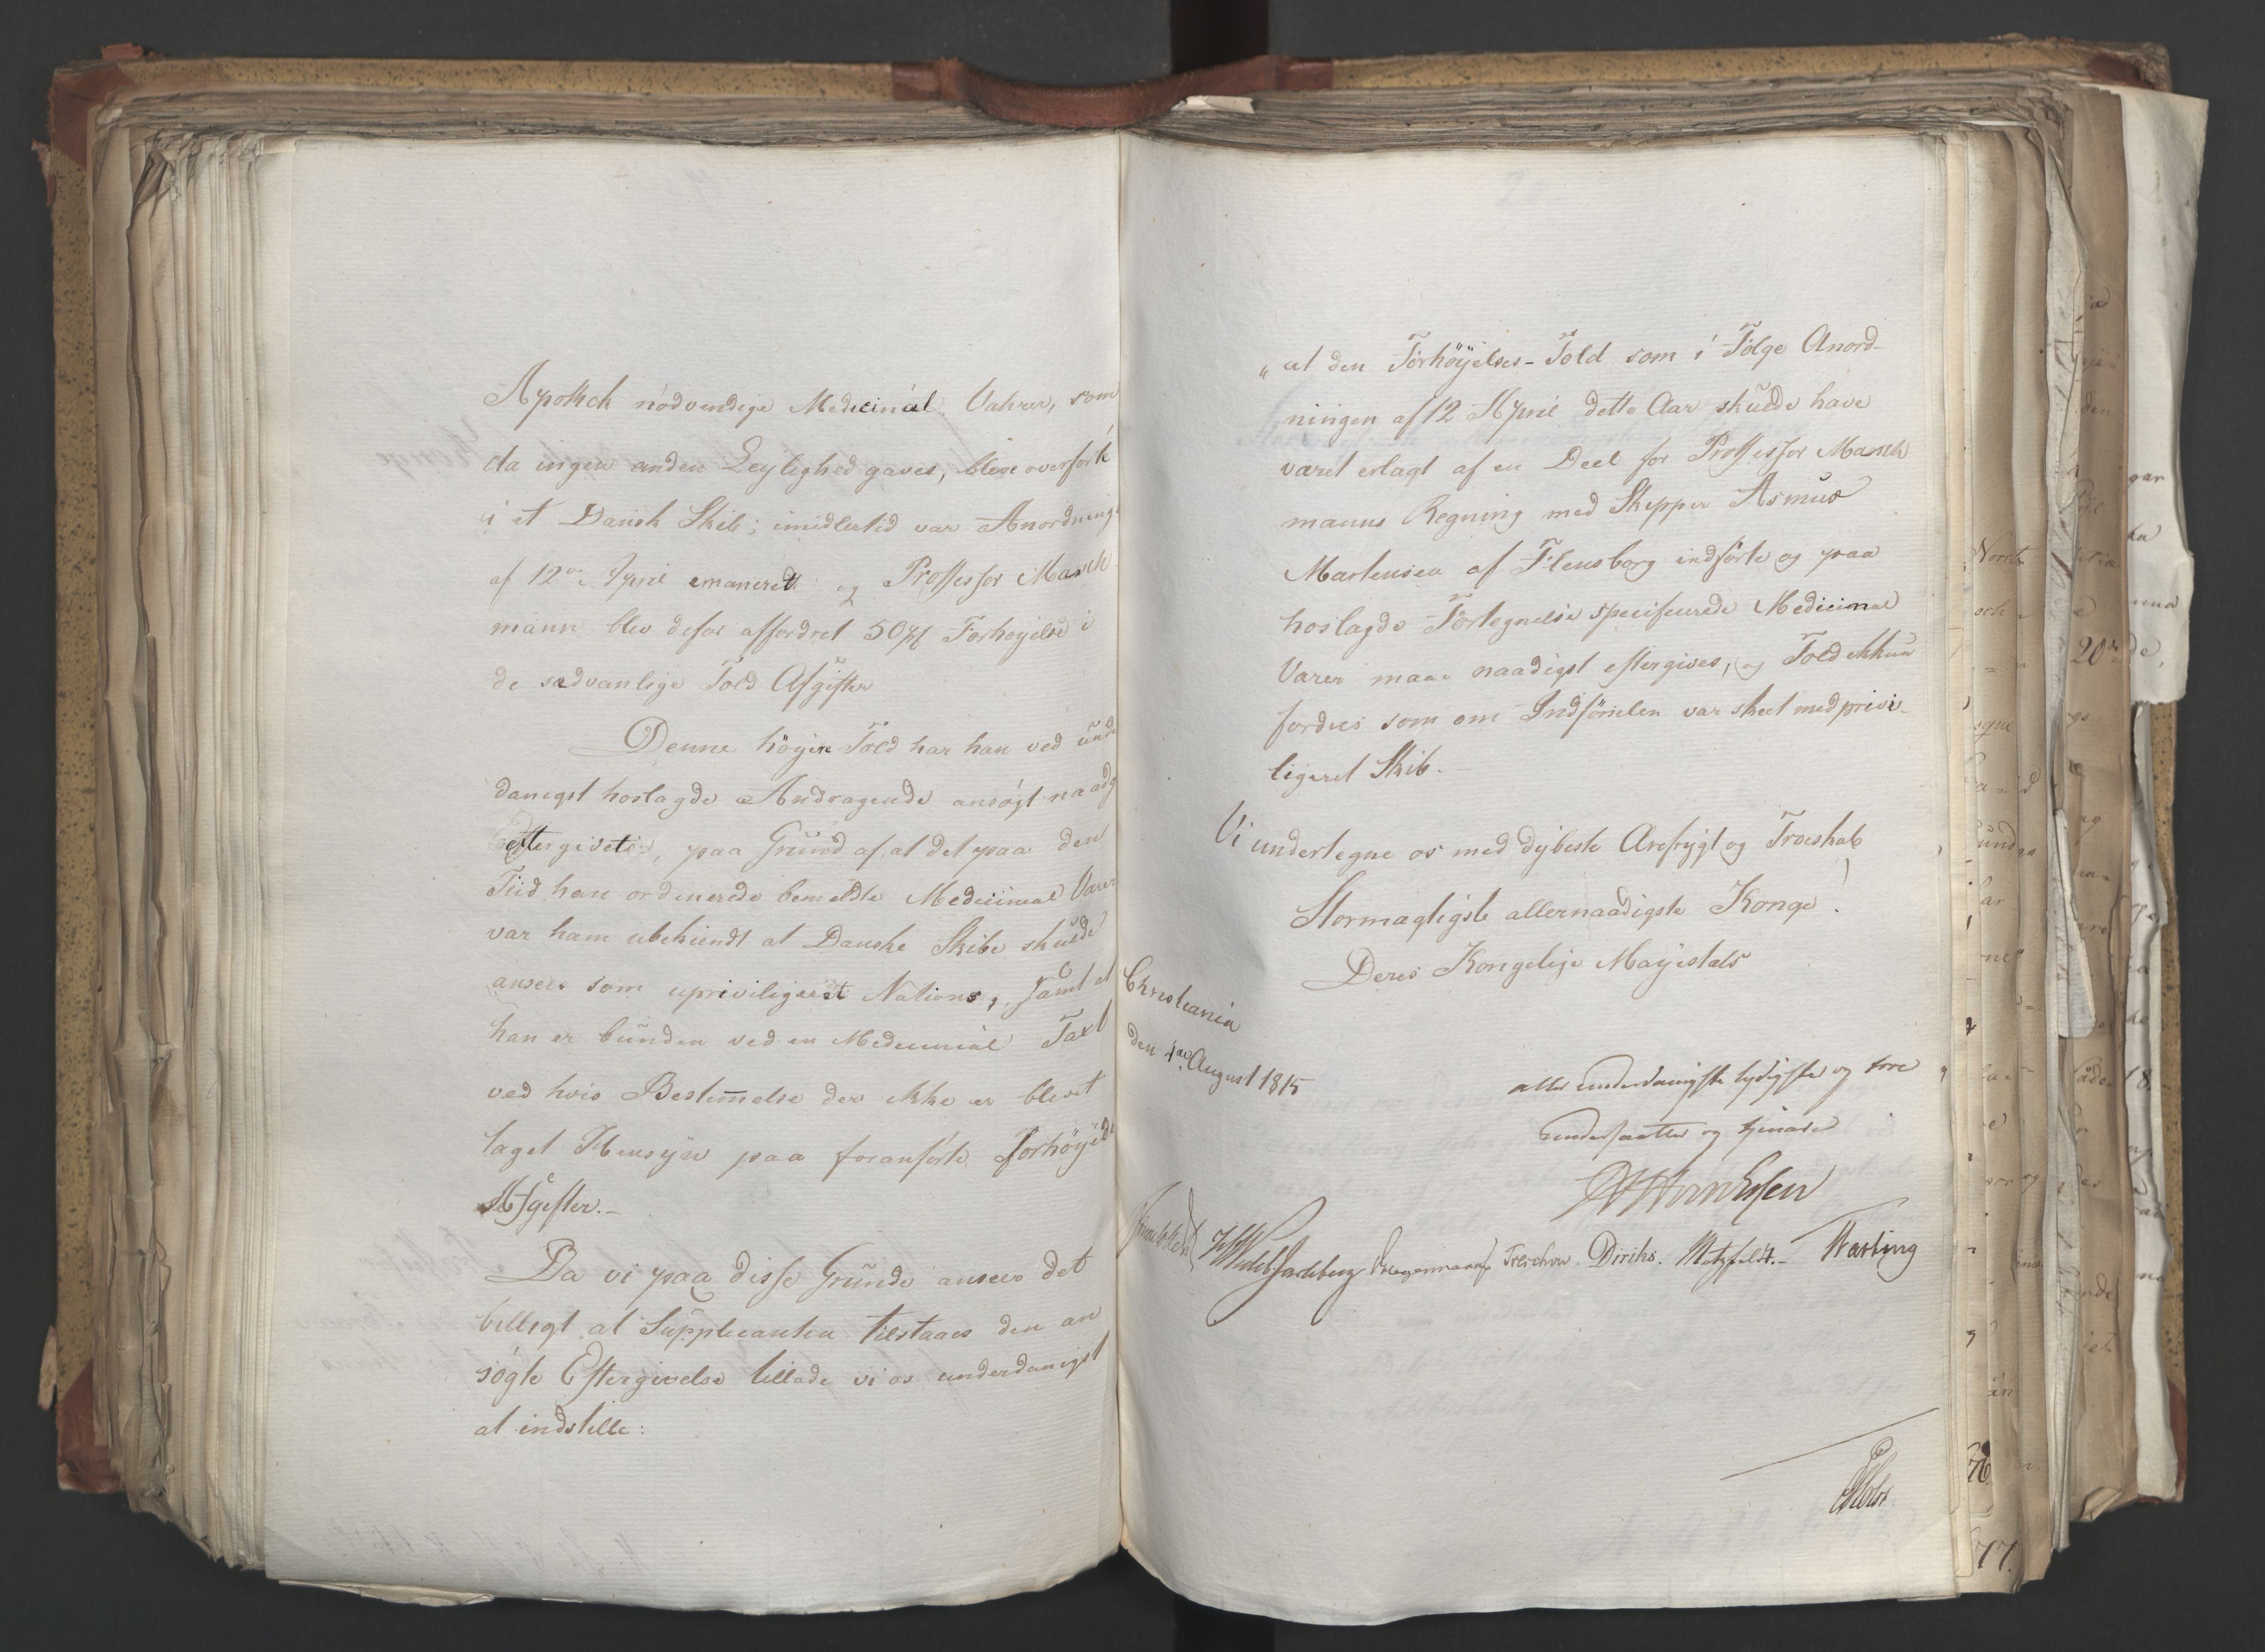 Apothek nödvendige Medicinal Vahrer, som
da ingen anden Leylighed gaves, bleve overförte
i et Dansk Skib; imidlertid var Anordning
af 12te April emaneret og Professor Maschmann
mann blev defor affordret 50 Forhøyelse i
de sedvanlige Told Afgifter
Denne höyere Told har han ved under
danigst hoslagde Andragende ansögt naadg
eftergivet, paa Grund af at det paa den
Tiid han ordinerede bemeldte Medicinal Varer
var ham ubekiendt at Danske Skibe skulde
ansees som upriviligeret Nations, samt at
han er bunden ved en Medicinal Taxt
ved hvis Bestemelse der ikke er blevet
taget Hensyn paa foranförte forhöyede
Afgifter.-
Da vi paa disse Grunde ansees det
billigt at Supplicanten tilstaaes den an
sögte Eftergivelse tillade vi os underdanigst
at indstille:
"at den Förhöyelses-Told som i Fölge Anord-
ningen af 12 April dette Aar skulde have
været erlagt af en Deel for Professor Masch
manns Regning med Skipper Asmus
Martensen af Flensborg indförte og paa
hoslagde Fortegnelse specificerede Medicinal
Varer maae naadigst eftergives, og Told ekkun
fordres som om Indförselen var skeet med privi-
ligeret Skib.-
Vi undertegne os med dybeste Ærefrygt og Troeskab
Stormægtigste allernaadigste Konge!
Deres Kongelige Mayestæts
Christiania
den 4de August 1815
allerunderdanigste lydigste og troe
undersaatter og tjenere
Sommerfeldt JHWedel Jarlsberg Krogenmaark Treschow. Diriks. Motzfeldt.- Hasting